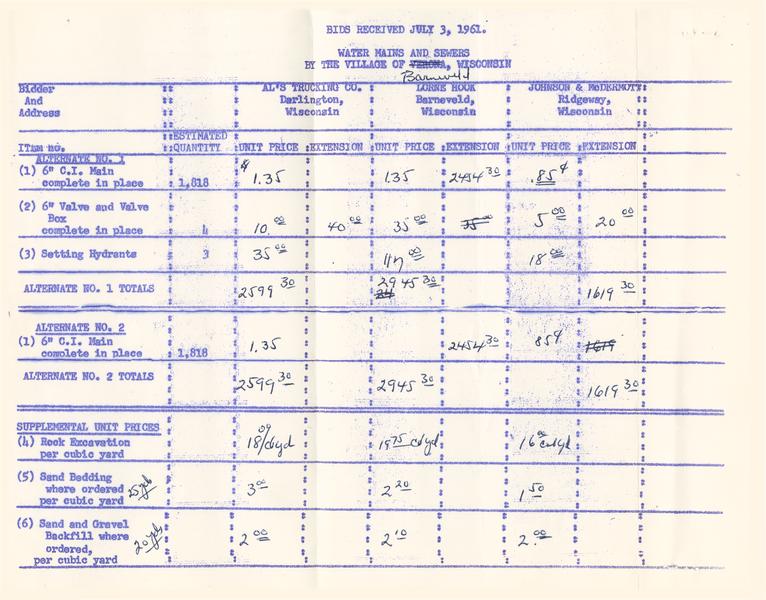 BIDS RECEIVED JULY 3, 1961.
WATER MAINS AND SEWERS
BY THE VILLAGE OF VERONA, WISCONSIN
Barneveld
Bidder AL'S TRUCKING CO. LORNE HOOK JOHNSON & McDERMOTT
And Darlington, Barneveld, Ridgeway,
Address Wisconsin Wisconsin Wisconsin
ESTIMATED
ITEM no. QUANTITY UNIT PRICE EXTENSION UNIT PRICE EXTENSION UNIT PRICE EXTENSION
ALTERNATE NO. 1
(1) 6" C.I. Main $ 1.35 1.35 2454 30 .85¢
complete in place 1,818
(2) 6" Valve and Valve
Box
complete in place 4 10.00 40 00 35 00 35 00 5 00 20 00
(3) Setting Hydrants 3 35 00 117 00 18 00
ALTERNATE NO. 1 TOTALS 2599 30 2945 30 1619 30
24
ALTERNATE NO. 2
(1) 6" C.I. Main 1.35 2454 30 85¢ 1619
complete in place 1,818
ALTERNATE NO. 2 TOTALS 2599 30 2945 30 1619 30
SUPPLEMENTAL UNIT PRICES
(4) Rock Excavation 18/cu yd 19 75 cu yd 16 00 cu yd
per cubic yard
(5) Sand Bedding
where ordered 25 yds 3 00 2 20 1 50
per cubic yard
(6) Sand and Gravel
Backfill where 20 yds 2 00 2 10 2.00
ordered,
per cubic yard